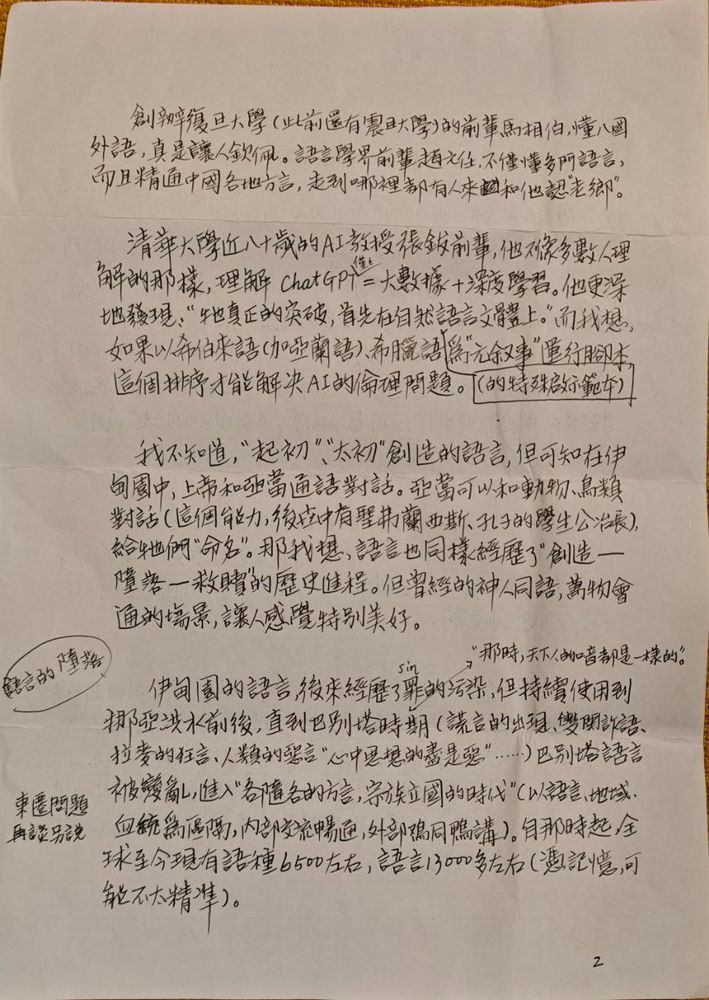 創辦復旦大學(此前還有震旦大學)的前輩馬相伯,懂八國
外語,真是讓人欽佩。語言學界前輩趙元任,不僅懂多門語言,
而且精通中國各地方言,走到哪裡都有人來和他認“老鄉”。
清華大學近八十歲的AI教授張鈸前輩,他不像多數人理
解的那樣,理解ChatGPT僅僅=大數據+深度學習。他更深
地發現,“牠真正的突破,首先在自然語言文體上。”而我想,
如果以希伯來語(加亞蘭語)、希臘語為“元敘事”運行腳本,
這個排序才能解決AI的倫理問題。(的特殊啟示範本)
我不知道,“起初”、“太初”創造的語言,但可知在伊
甸園中,上帝和亞當通語對話。亞當可以和動物、鳥類
對話(這個能力,後世中有聖弗蘭西斯、孔子的學生公冶長),
給牠們“命名”。那我想、語言也同樣經歷了“創造—
墮落—救贖”的歷史進程。但曾經的神人同語,萬物會
通的場景,讓人感覺特別美好。
語言的墮落
“那時,天下人的口音都是一樣的”。
sin
伊甸園的語言,後來經歷了罪的污染,但持續使用到
挪亞洪水前後,直到巴別塔時期(謊言的出現、雙關詐語、
拉麥的狂言、人類的惡言“心中思想的盡是惡”……)巴別塔語言
被變亂,進入“各隨各的方言,宗族立國的時代”(以語言、地域、
血統為區隔,內部交流暢通,外部鷄同鴨講)。自那時起,全
球至今現有語種6500左右,語言13000多左右(憑記憶,可
能不太精準)。
東遷問題
再談另說
2